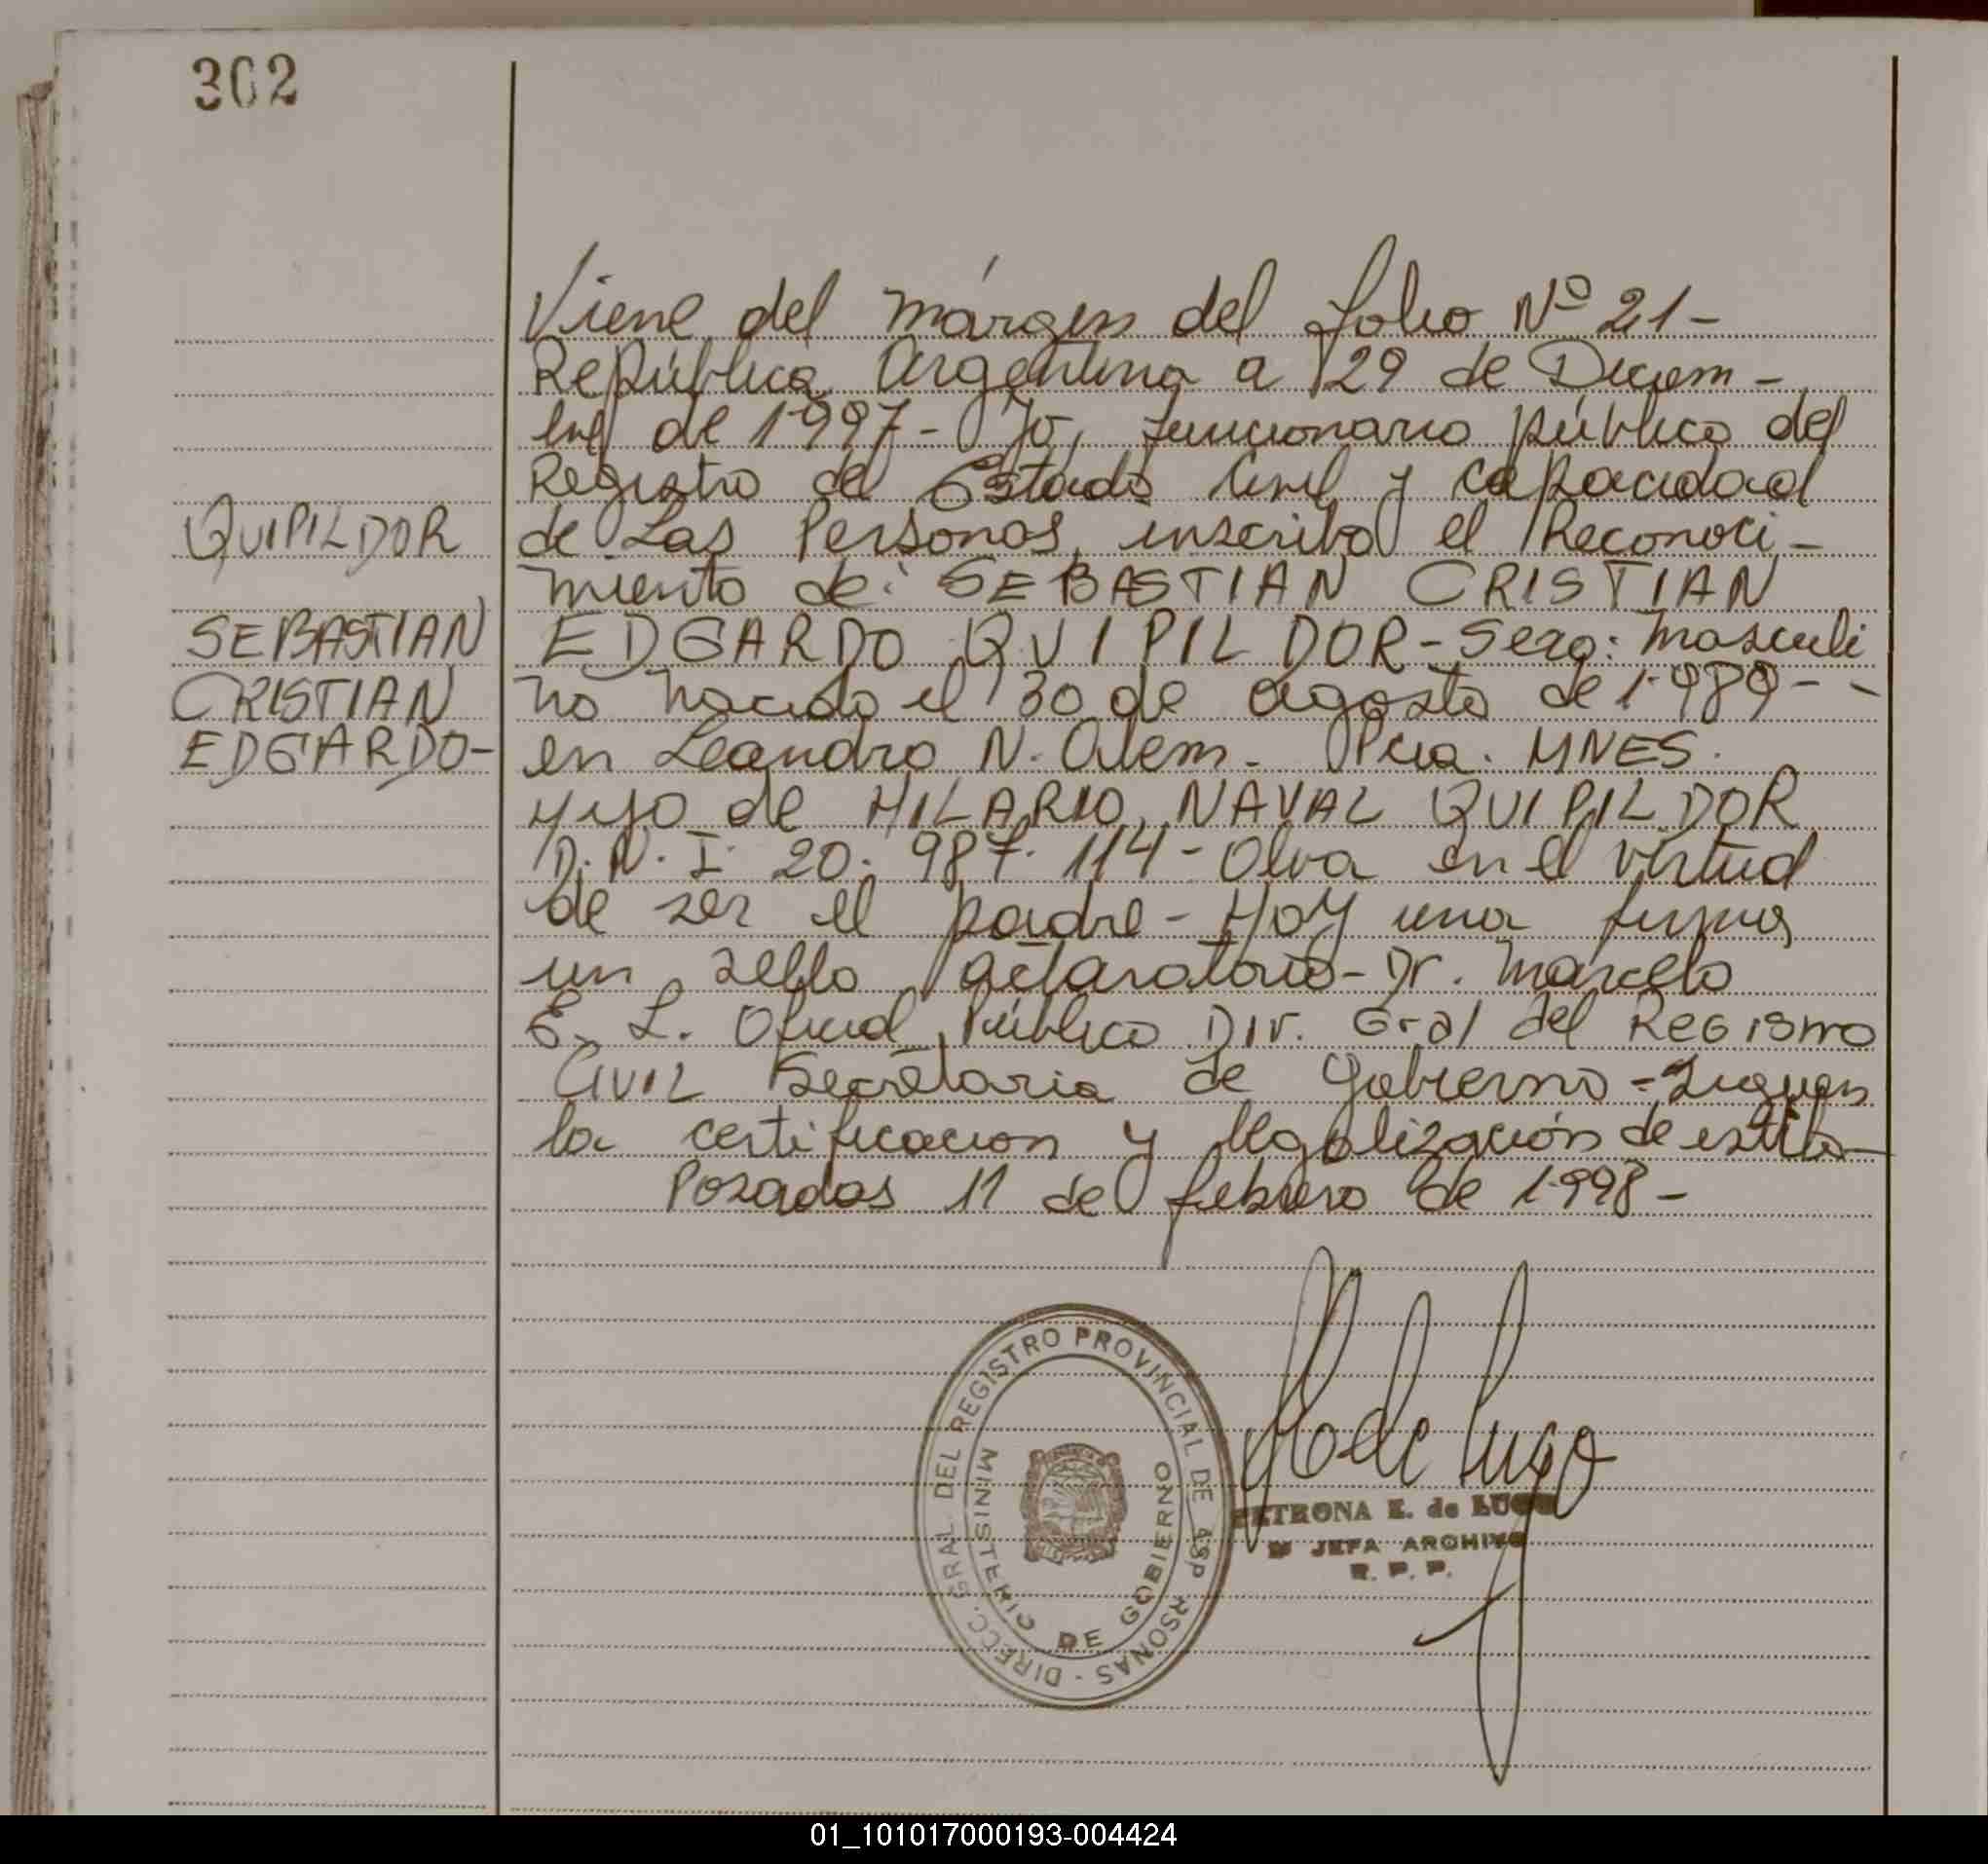 302
Viene del márgen del folio Nº 21-
República Argentina a 29 de Diciem-
bre de 1997- Yo, funcionario público del
Registro del Estado Civil y Capacidad
de Las Personas, inscribo el Reconoci-
miento de: SEBASTIAN CRISTIAN
EDGARDO QUIPILDOR- Sexo: Masculi
no nacido el 30 de agosto de 1.989- -
en Leandro N. Alem- Pcia. MNES.
Hijo de HILARIO NAVAL QUIPILDOR
D.N.I. 20.987.114- en el virtud
de ser el padre- Hay una firma
un sello aclaratorio- Dr. Marcelo
E. L. Oficial Público Dir. Gral del Registro
CIVIL Secretaria de Gobierno- Siguen
la certificacion y legalización de estilo-
Posadas 11 de febrero de 1.998-
QUIPILDOR
SEBASTIAN
CRISTIAN
EDGARDO-
DIRECC. GRAL. DEL REGISTRO PROVINCIAL DE RSONAS -
MINISTERIO DE GOBIERNO
de Lugo
PETRONA E. de LUGO
JEFA ARCHIVO
R. P. P.
01_101017000193-004424